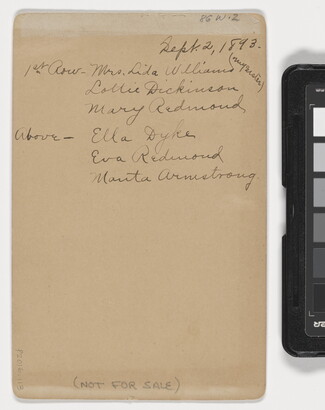 86 W-2
Sept. 2, 1893.
1st Row - Mrs. Lida Williams (my sister)
Lottie Dickinson
Mary Redmond
Above - Ella Dyke
Eva Redmond
Manta Armstrong.
(NOT FOR SALE)